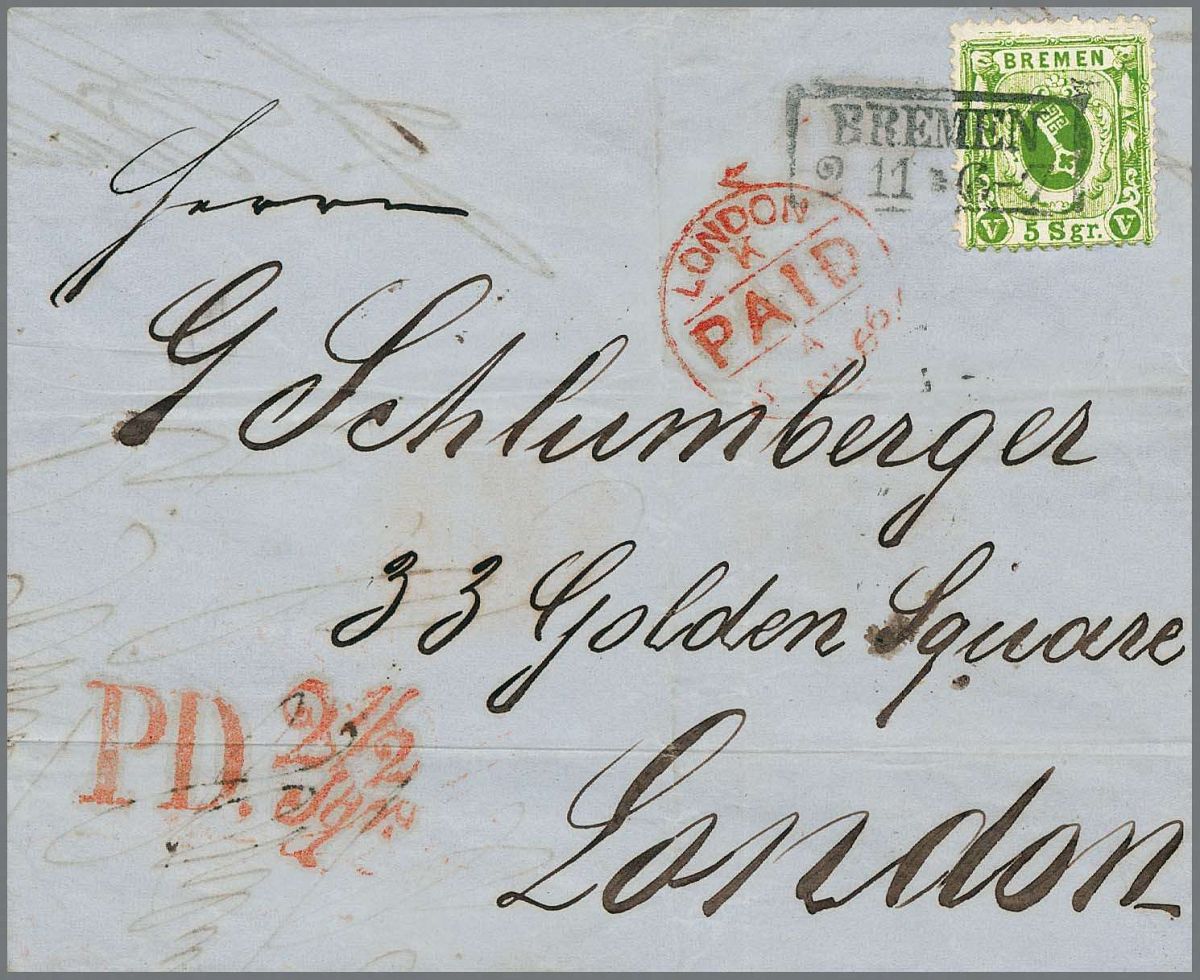 BREMEN
V 5 Sgr. V
BREMEN
2 11
LONDON
K
PAID
66
Herrn
G Schlumberger
33 Golden Square
London
PD. 2 1/2
Sgr.